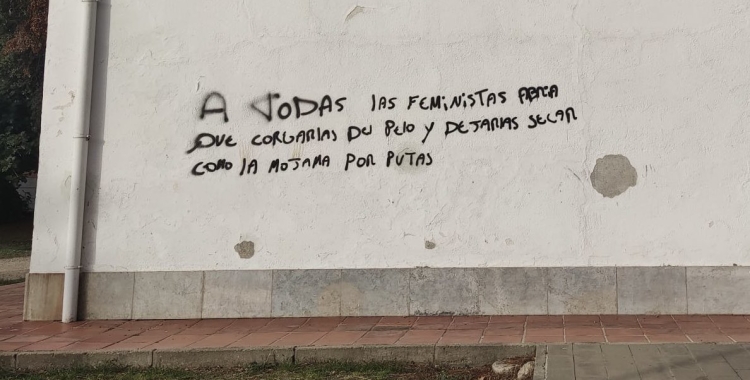 A TODAS LAS FEMINISTAS ABRIA
QUE CORGARLAS DEL PELO Y DEJARLAS SECAR
COMO LA MOJAMA POR PUTAS